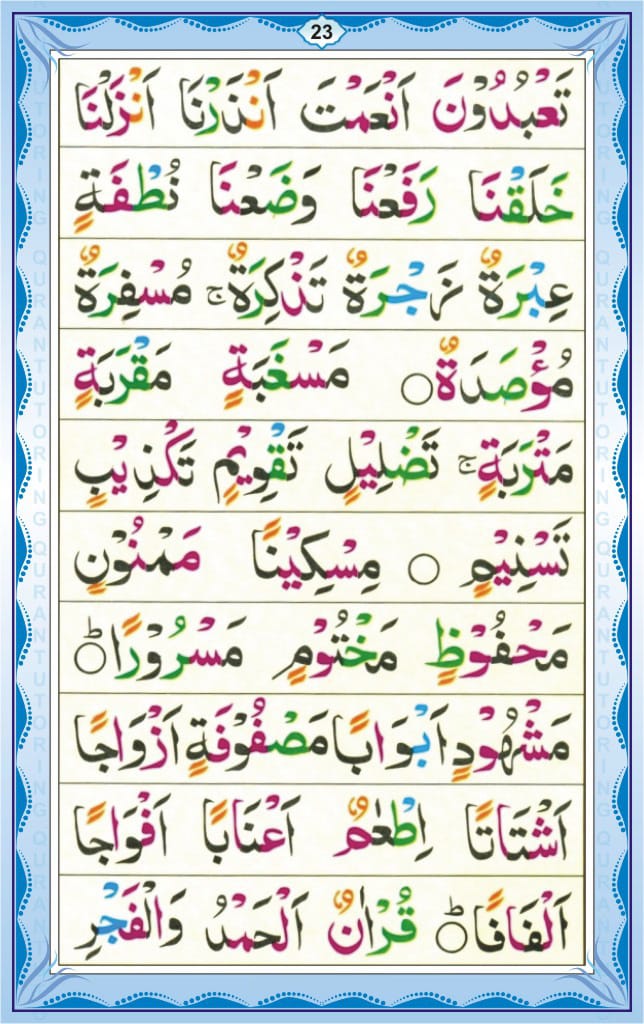 23
تَعْبُدُوْنَ اَنْعَمْتَ اَنْذَرْنَا اَنْزَلْنَا
خَلَقْنَا رَفَعْنَا وَضَعْنَا نُطْفَةٍ
عِبْرَةٌ زَجْرَةٌ تَذْكِرَةٌ ۚ مُسْفِرَةٌ
مُؤْصَدَةٌ ○ مَسْغَبَةٍ مَقْرَبَةٍ
مَتْرَبَةٍ ۚ تَضْلِيْلٍ تَقْوِيْمٍ تَكْذِيْبٍ
تَسْنِيْمٍ ○ مِسْكِيْنًا مَمْنُوْنٍ
مَحْفُوْظٍ مَخْتُوْمٍ مَسْرُوْرًا ؕ○
مَشْهُوْدٍ اَبْوَابًا مَصْفُوْفَةٍ اَزْوَاجًا
اَشْتَاتًا اِطْعٰمٌ اَعْنَابًا اَفْوَاجًا
اَلْفَافًا ؕ○ قُرْاٰنٌ اَلْحَمْدُ وَالْفَجْرِ
QURAN TUTORING QURAN TUTORING
QURAN TUTORING QURAN TUTORING